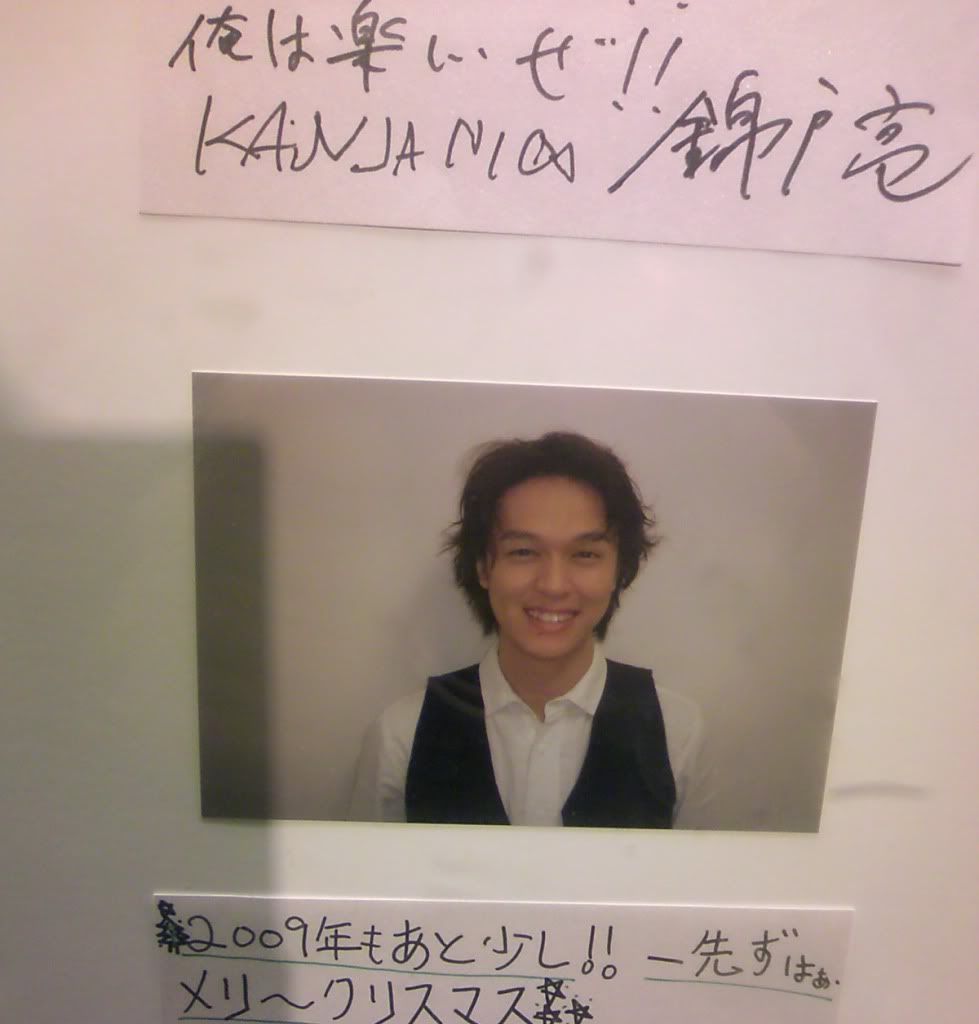 俺は楽しいぜ!!
KANJANI∞ 錦戸亮
2009年もあと少し!! 一先ずはぁ、
メリ〜クリスマス